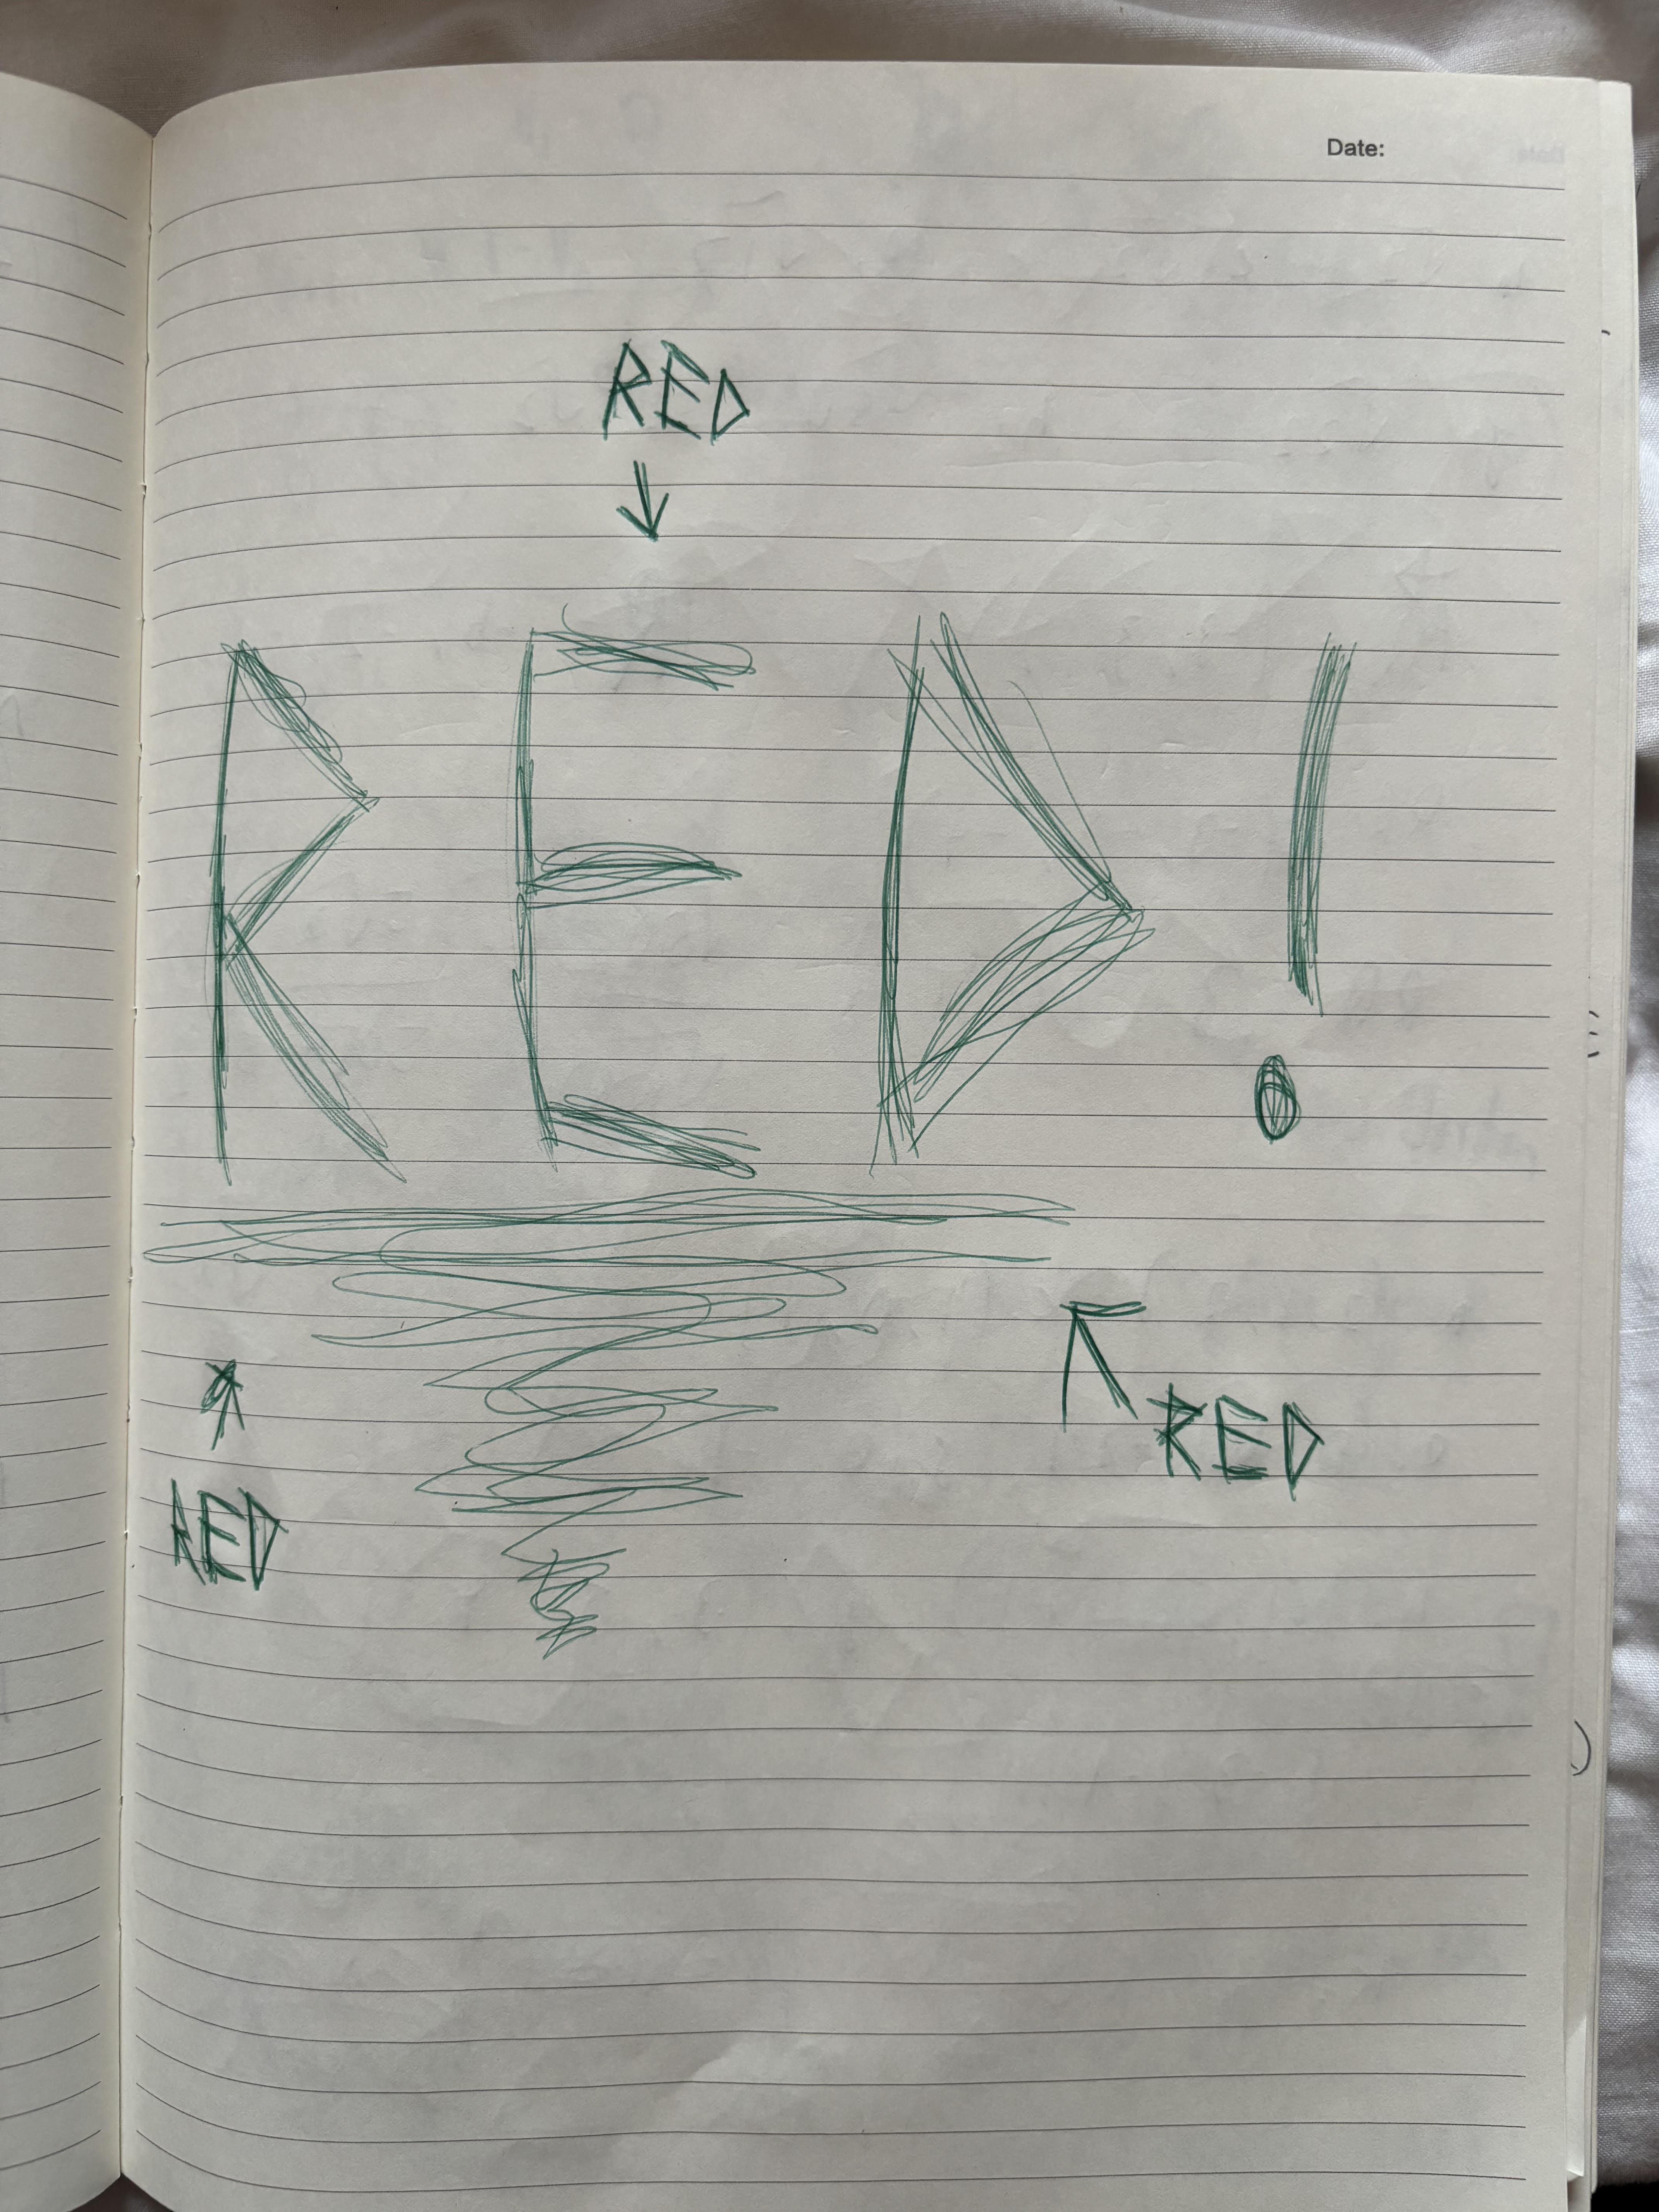 Date:
RED
RED!
RED
RED